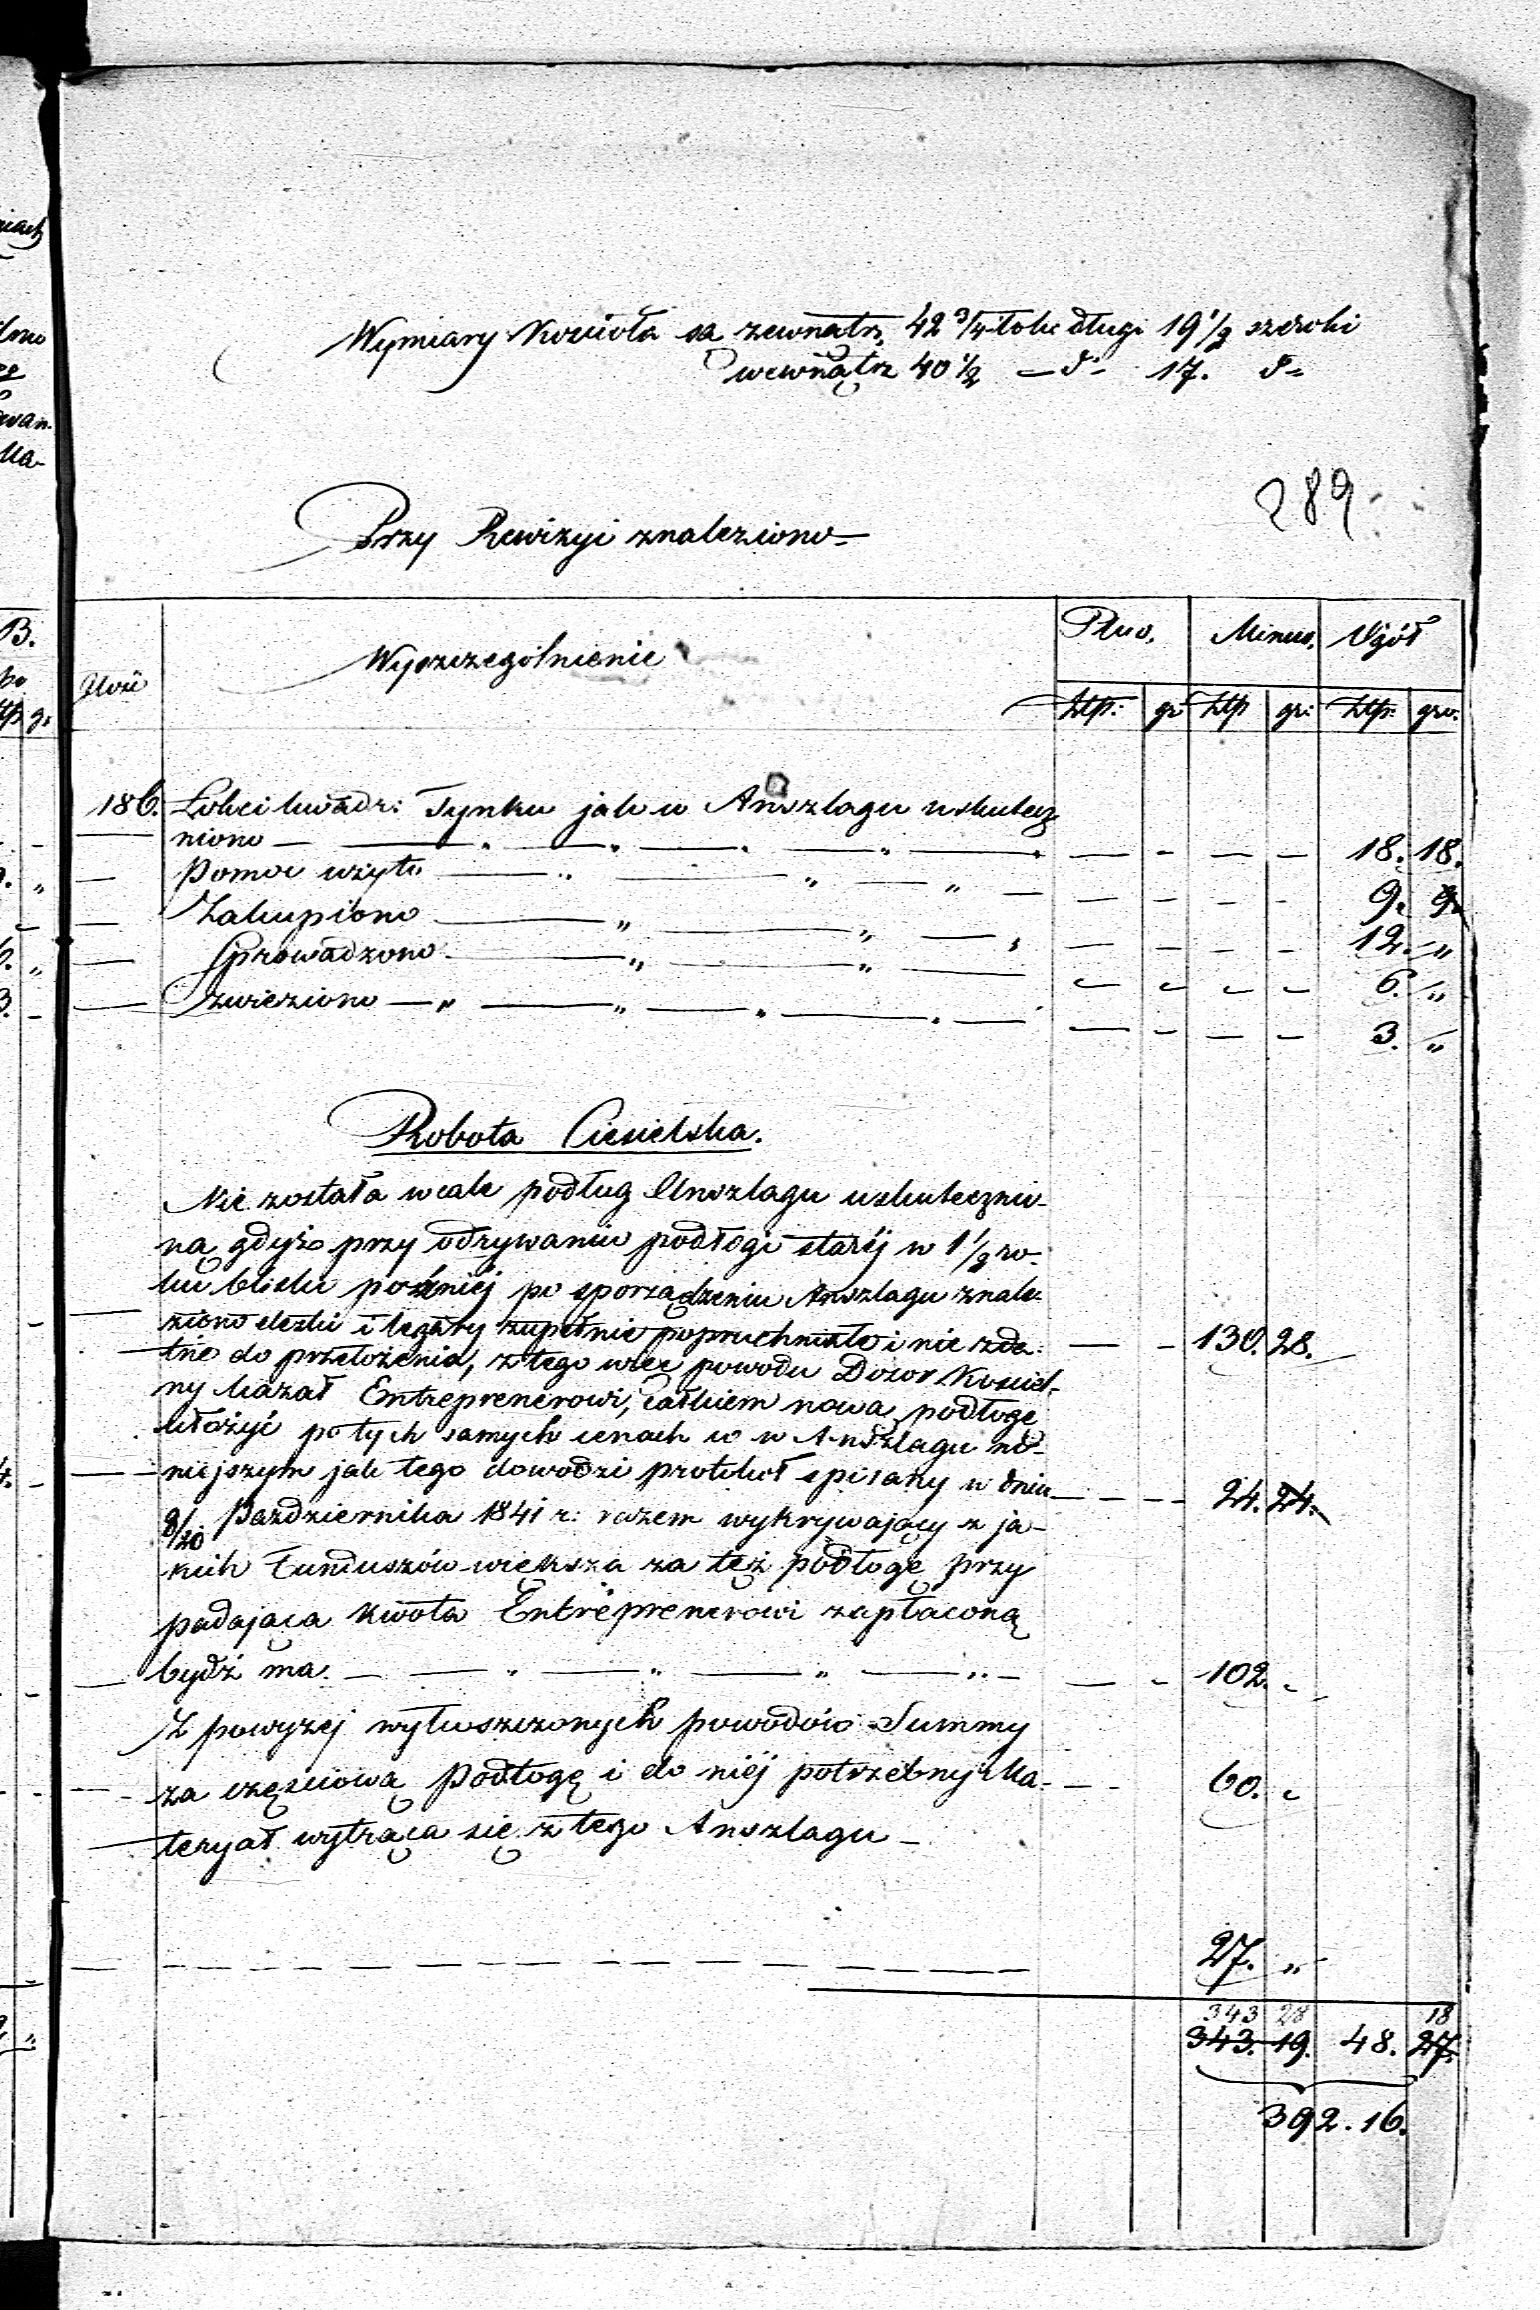 Wymiary Kościoła są zewnątrz 42 3/4 łokc długi 19 1/2 szeroki
wewnątrz 40 1/2 — d° 17. d°
289
Przy Rewizyi znaleziono
Ilość Wyszczególnienie Plus. Minus. Ogół
złp: gr złp gr: złp: gro:
186. Łokci kwadr: Tynku jak w Anszlagu uskutecz
niono — 18. 18.
Pomoc użyto — 9. 9.
Zakupiono — 12. "
Sprowadzono — 6. "
Zwieziono — 3. "
Robota Ciesielska.
Nie została wcale podług Anszlagu uskutecznio-
ną gdyż przy odrywaniu podłogi starej w 1 1/2 ro-
ku blisko później po sporządzeniu Anszlagu znale-
ziono deski i legary zupełnie popruchniałe i nie zda-
tne do przełożenia, z tego więc powodu Dozór Kościel- 130. 28.
ny kazał Entreprenerowi, całkiem nową podłogę
ułożyć po tych samych cenach co w Anszlagu ni-
niejszym jak tego dowodzi protokół spisany w dniu 24. 24.
8/20 Października 1841 r: razem wykrywający z ja-
kich Funduszów większa za też podłogę przy
padająca kwota Entreprenerowi zapłaconą
bydź ma. — 102. "
Z powyżej wyłuszczonych powodów Summy
za częściową Podłogę i do niej potrzebny Ma- 60. "
teryał wytrąca się z tego Anszlagu —
27. "
343 28 18
343. 19. 48. 27.
392. 16.